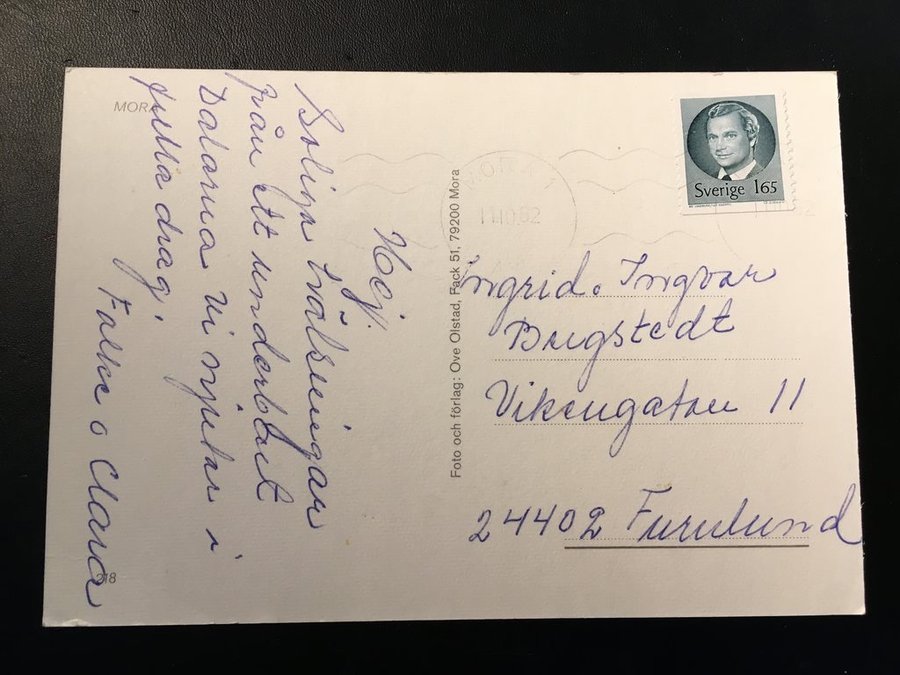 MORA
Hej.
Soliga hälsningar
från ett underbart
Dalarna Vi njuter i
fulla drag.
Falke o Clara
218
Foto och förlag: Ove Olstad, Fack 51, 79200 Mora
MORA 1
11.10.82
Sverige 165
Ingrid o Ingvar
Bregstedt
Vikengatan 11
24402 Furulund